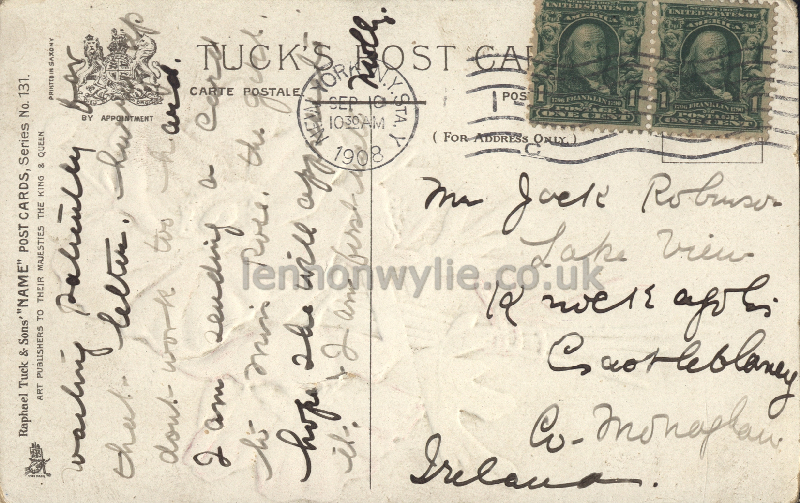 TUCK'S POST CAR
CARTE POSTALE
BY APPOINTMENT
PRINTED IN SAXONY
(FOR ADDRESS ONLY.)
NEW YORK, N.Y. STA. Y
SEP 10
10 30 AM
1908
C
UNITED STATES OF
AMERICA
FRANKLIN
POSTAGE
ONE CENT
1
1
UNITED STATES OF
AMERICA
FRANKLIN
POSTAGE
ONE CENT
1
1
Mr Jack Robinson
Lake View
Castleblaney
Co. Monaghan
Ireland.
Raphael Tuck & Sons' "NAME" POST CARDS, Series No. 131.
ART PUBLISHERS TO THEIR MAJESTIES THE KING & QUEEN
waiting patiently for
that letter. hurry up
dont work too hard.
I am sending a card
to Miss Rose. the girl.
hope she will app
it. I am first
lennonwylie.co.uk